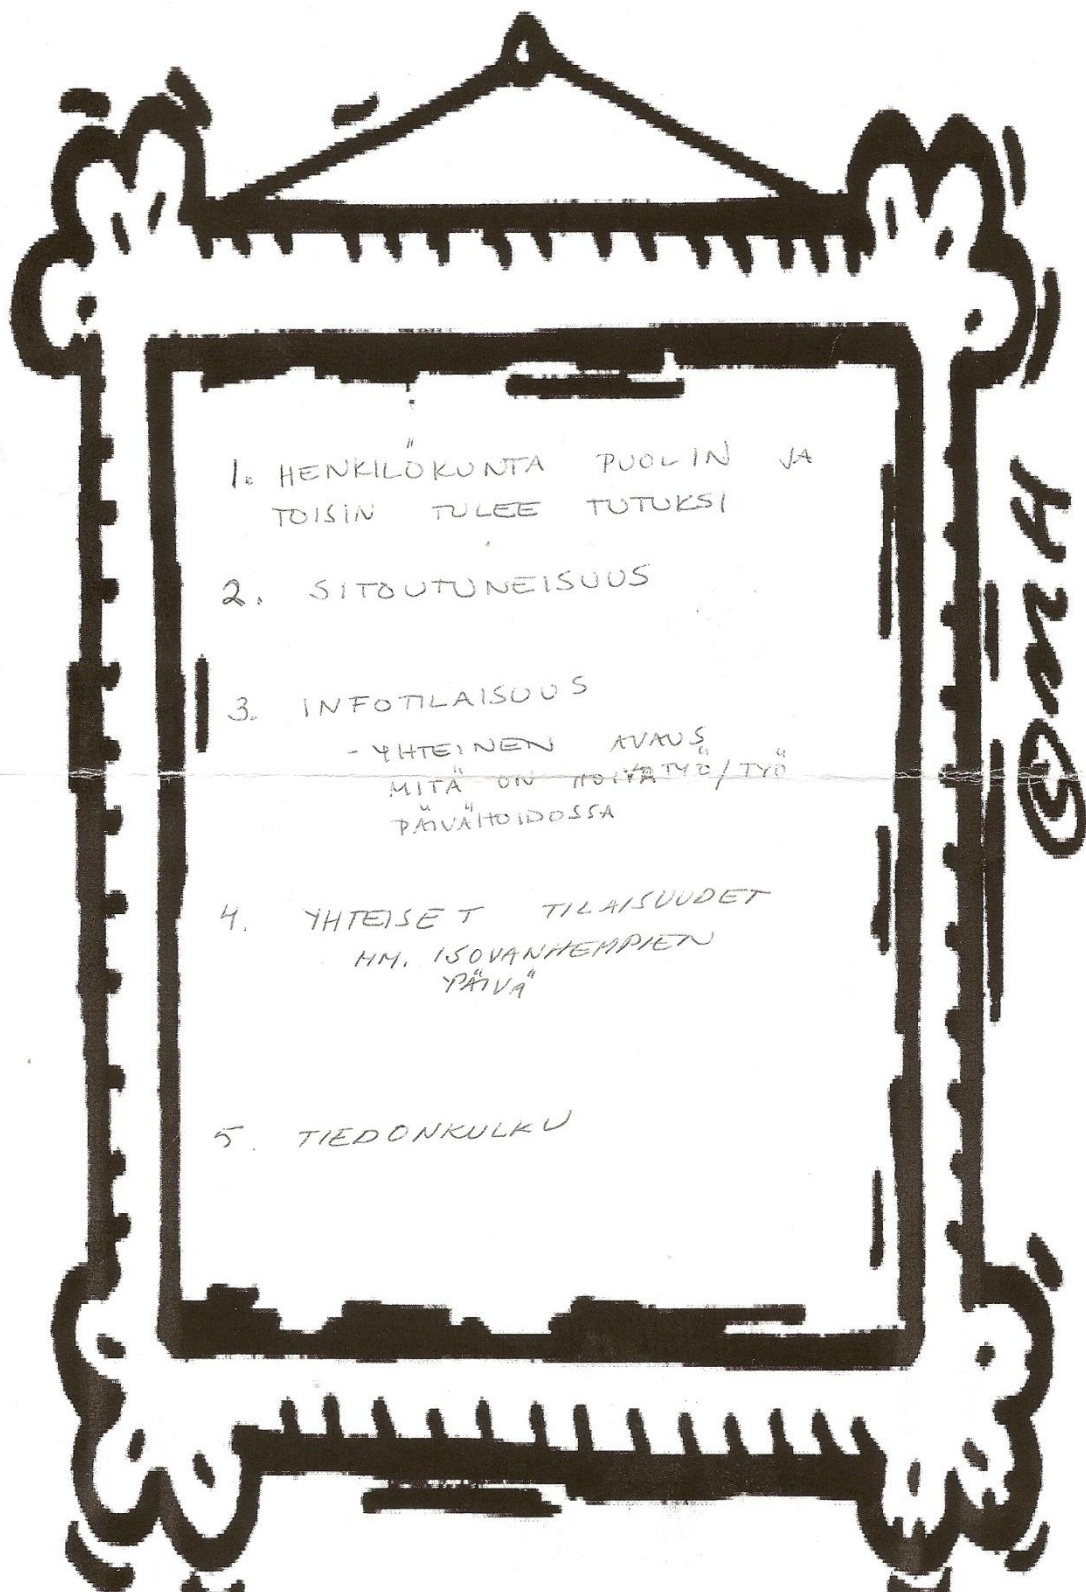 1. HENKILÖKUNTA PUOLIN JA
TOISIN TULEE TUTUKSI
2. SITOUTUNEISUUS
3. INFOTILAISUUS
- YHTEINEN AVAUS
MITÄ ON HOIVATYÖ/TYÖ
PÄIVÄHOIDOSSA
4. YHTEISET TILAISUUDET
MM. ISOVANHEMPIEN
PÄIVÄ
5. TIEDONKULKU